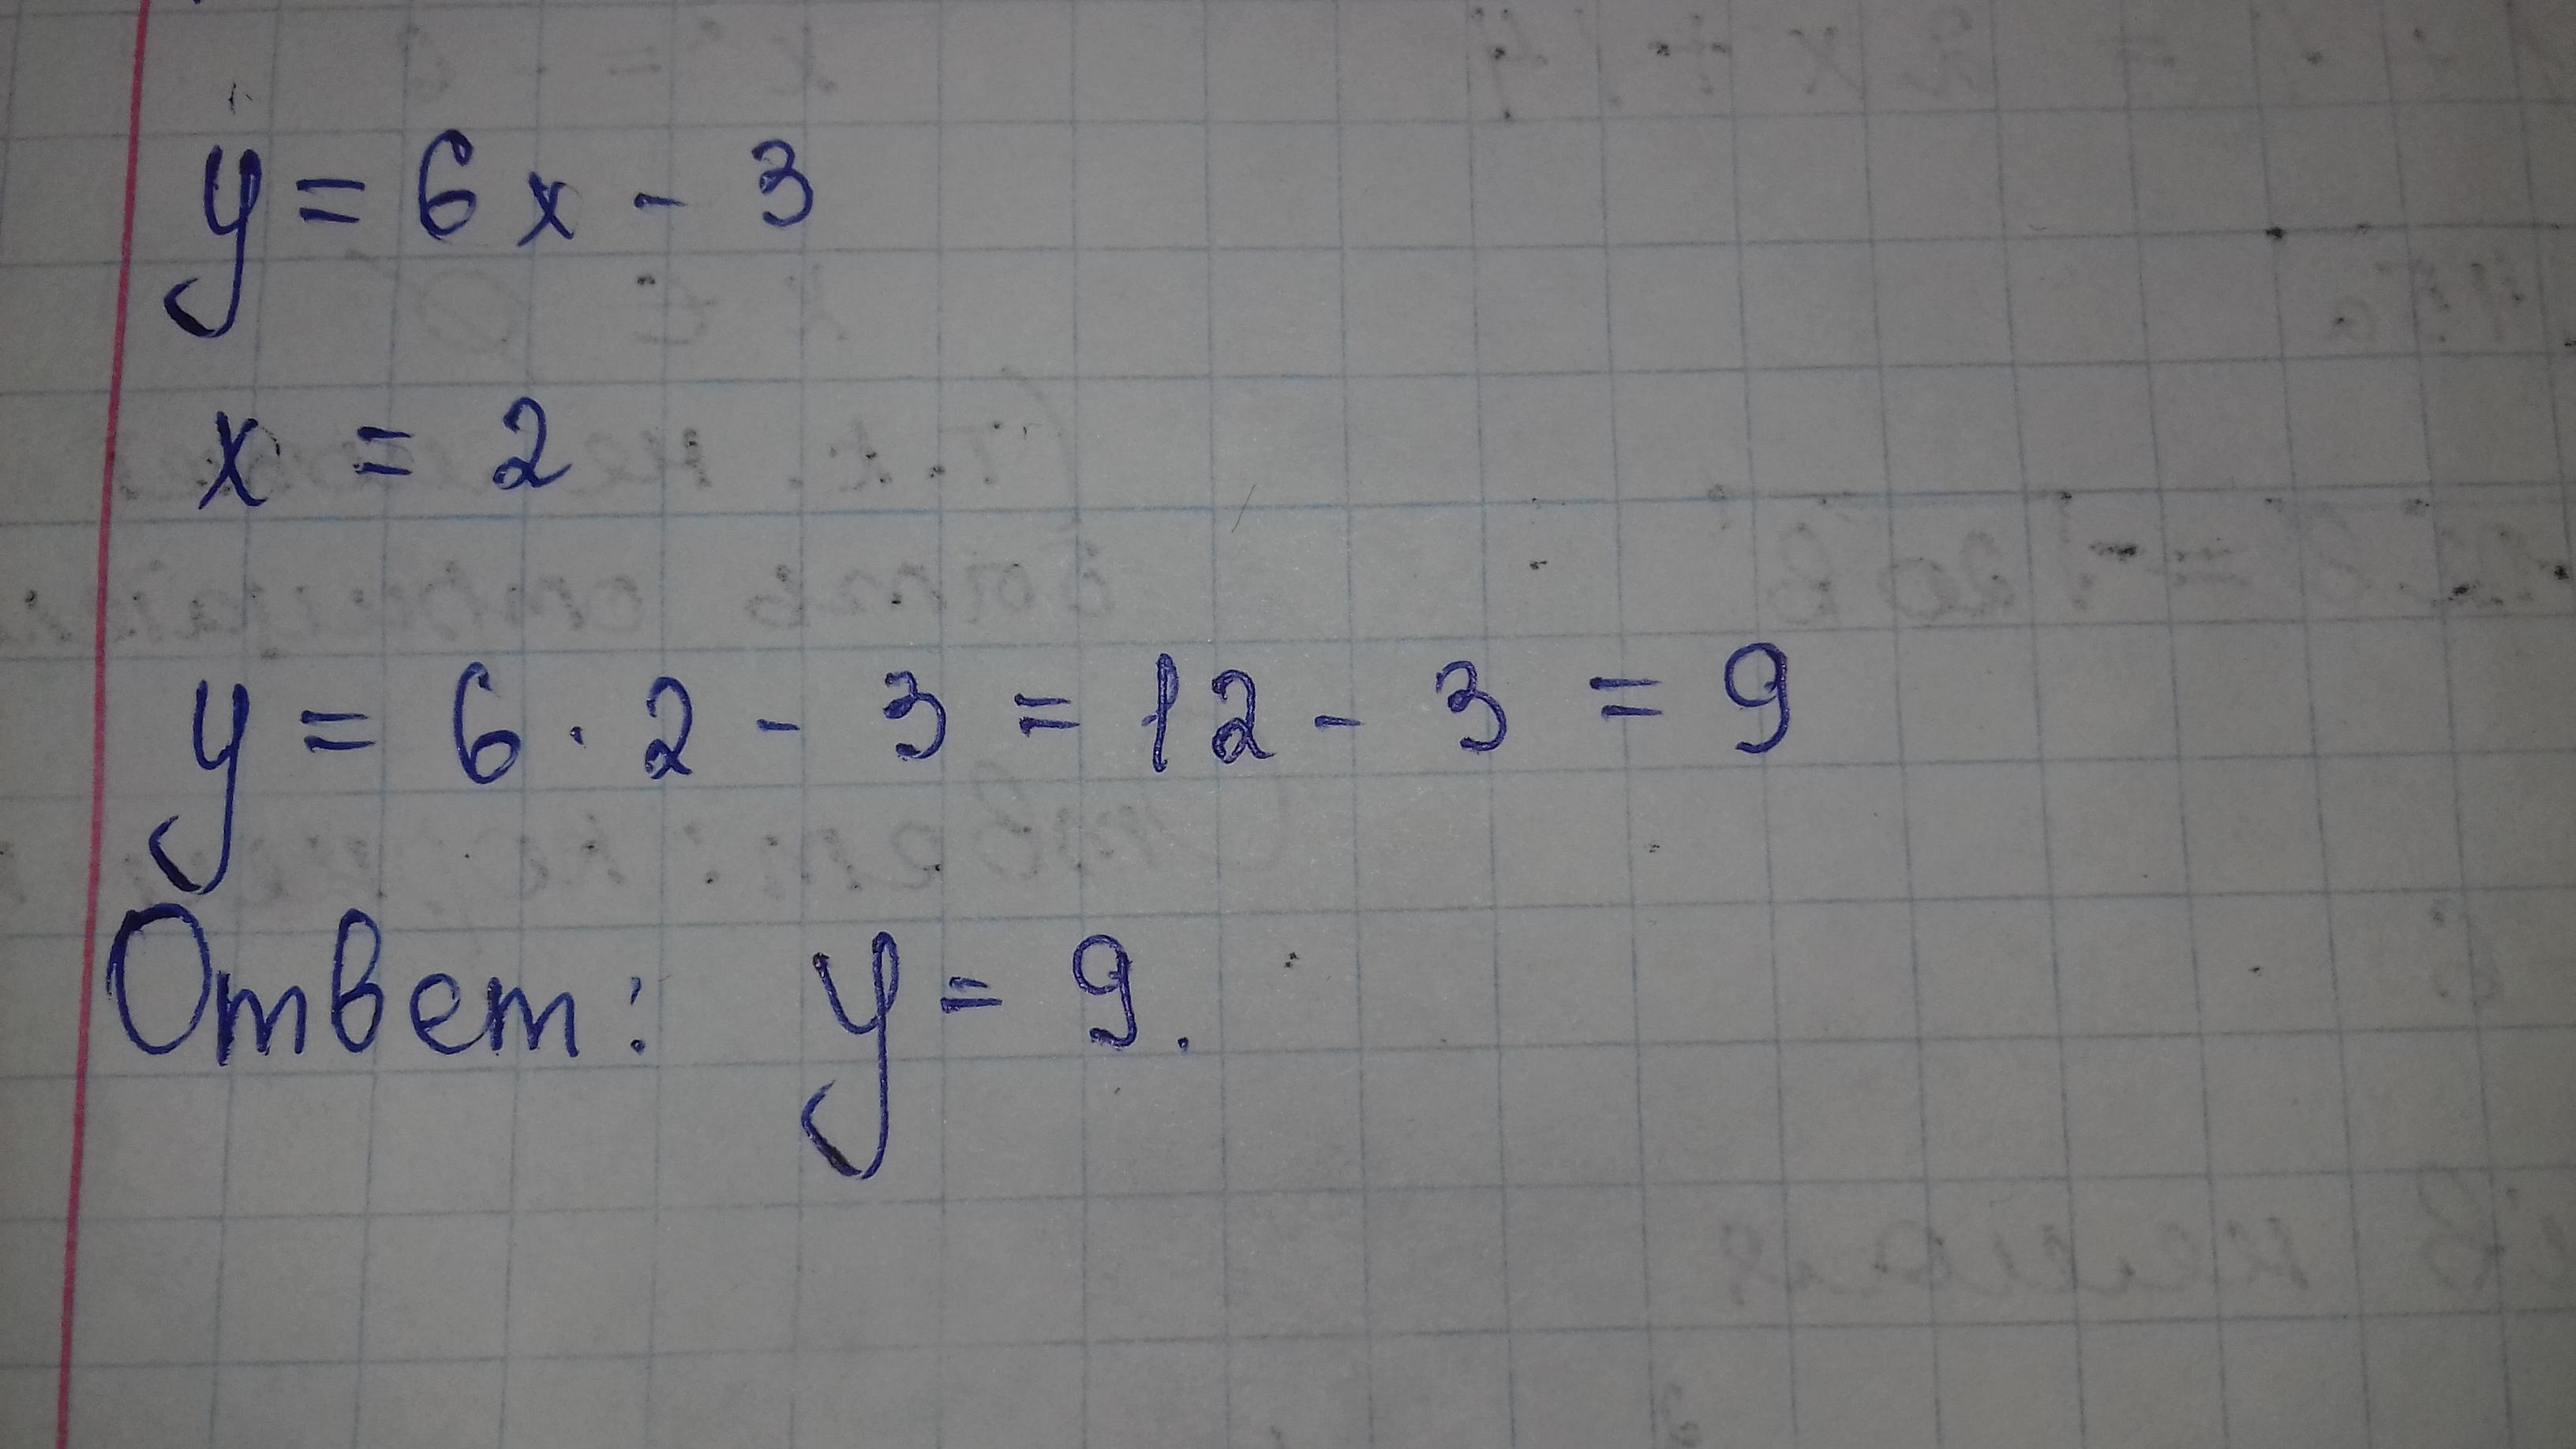 y = 6x - 3
x = 2
y = 6 · 2 - 3 = 12 - 3 = 9
Ответ: y = 9.